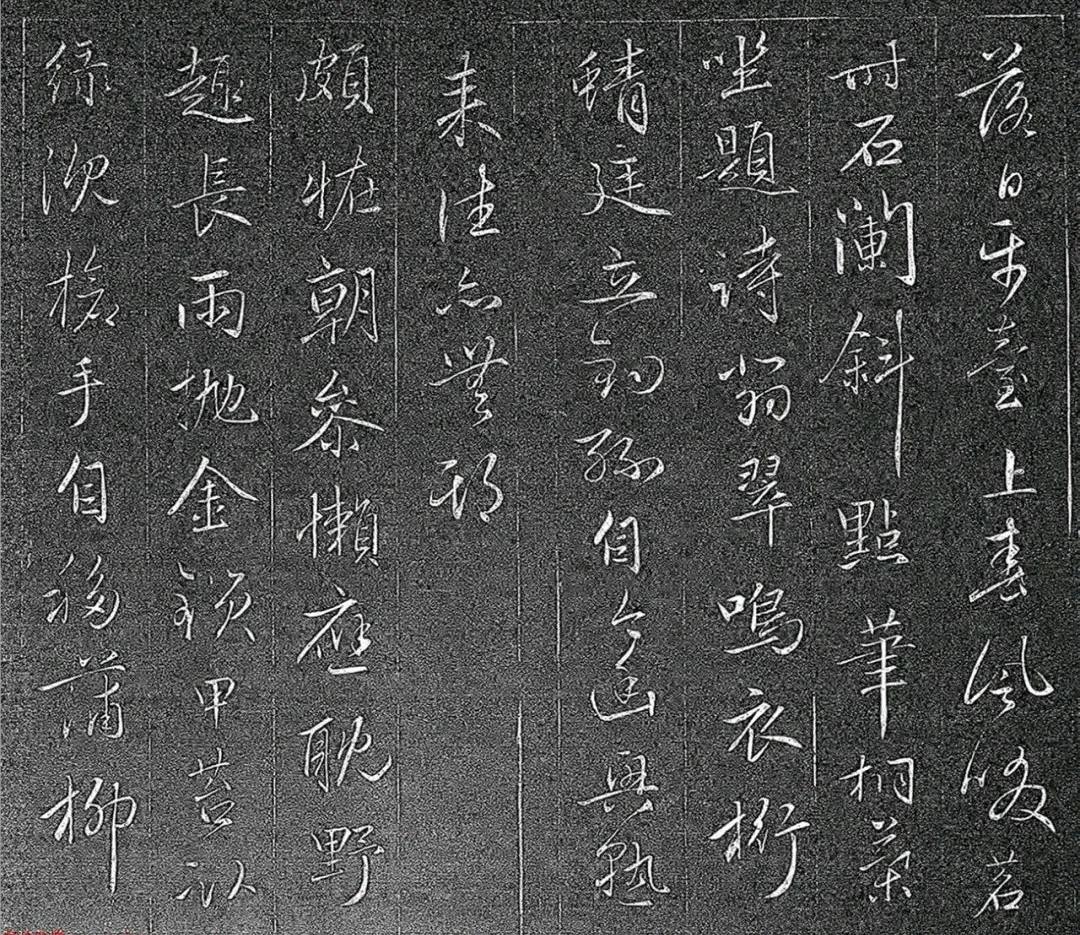 落日平臺上春風啜茗
時石瀾斜點筆桐葉
坐題詩翡翠鳴衣桁
蜻蜓立釣絲自今幽興熟
來往亦無期
頗恠朝參懶應耽野
趣長雨拋金鎖甲苔臥
綠沉槍手自移蒲柳